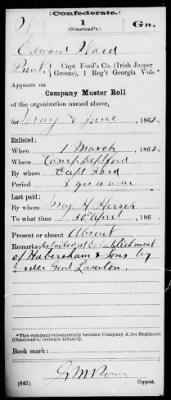 (Confederate.)
1 Ga.
(Olmstead's.)
Edward Ward
Pvt, Capt. Ford's Co. (Irish Jasper
Greens), 1 Reg't Georgia Vols.*
Appears on
Company Muster Roll
of the organization named above,
for May & June, 1862.
Enlisted:
When 1 March, 186
Where Camp Deptford
By whom Capt Ford
Period 3 years or war
Last paid:
By whom Maj H. Hirsch
To what time 30 April, 186
Present or absent Absent
Remarks: Detailed at Establishment
of Habersham & Sons by
order Genl Lawton.
*This company subsequently became Company A, 1st Regiment
(Olmstead's) Georgia Infantry.
Book mark:
(642) Copyist.